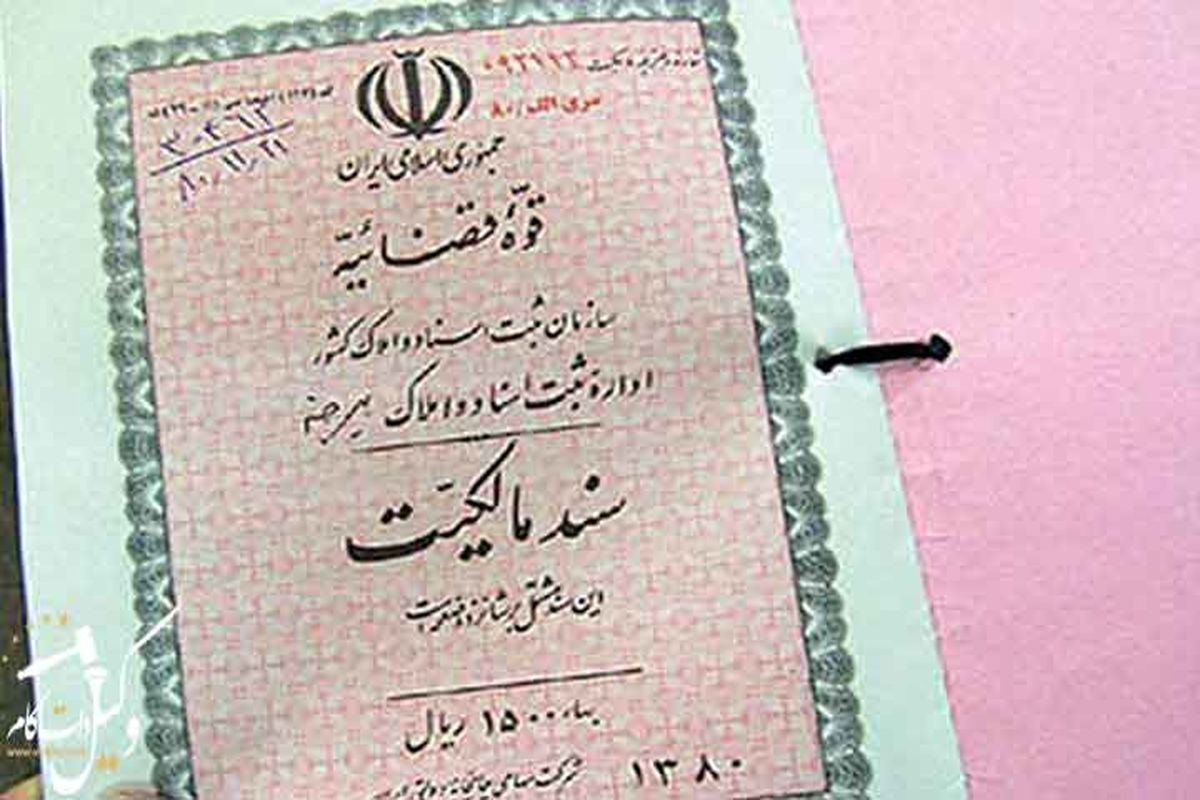 شماره دفترچه مالکیت ۰۹۲۱۱۲
سری الف/۸۰
۳۰۴۶۱۲
۸۰/۱۱/۲۱
جمهوری اسلامی ایران
قوّهٔ قضائیّه
سازمان ثبت اسناد و املاک کشور
ادارهٔ ثبت اسناد و املاک
سند مالکیّت
این سند مشتمل بر شانزده صفحه است
بهاء ۱۵۰۰ ریال
شرکت سهامی چاپخانه دولتی ایران
۱۳۸۰
وکیل دات کام